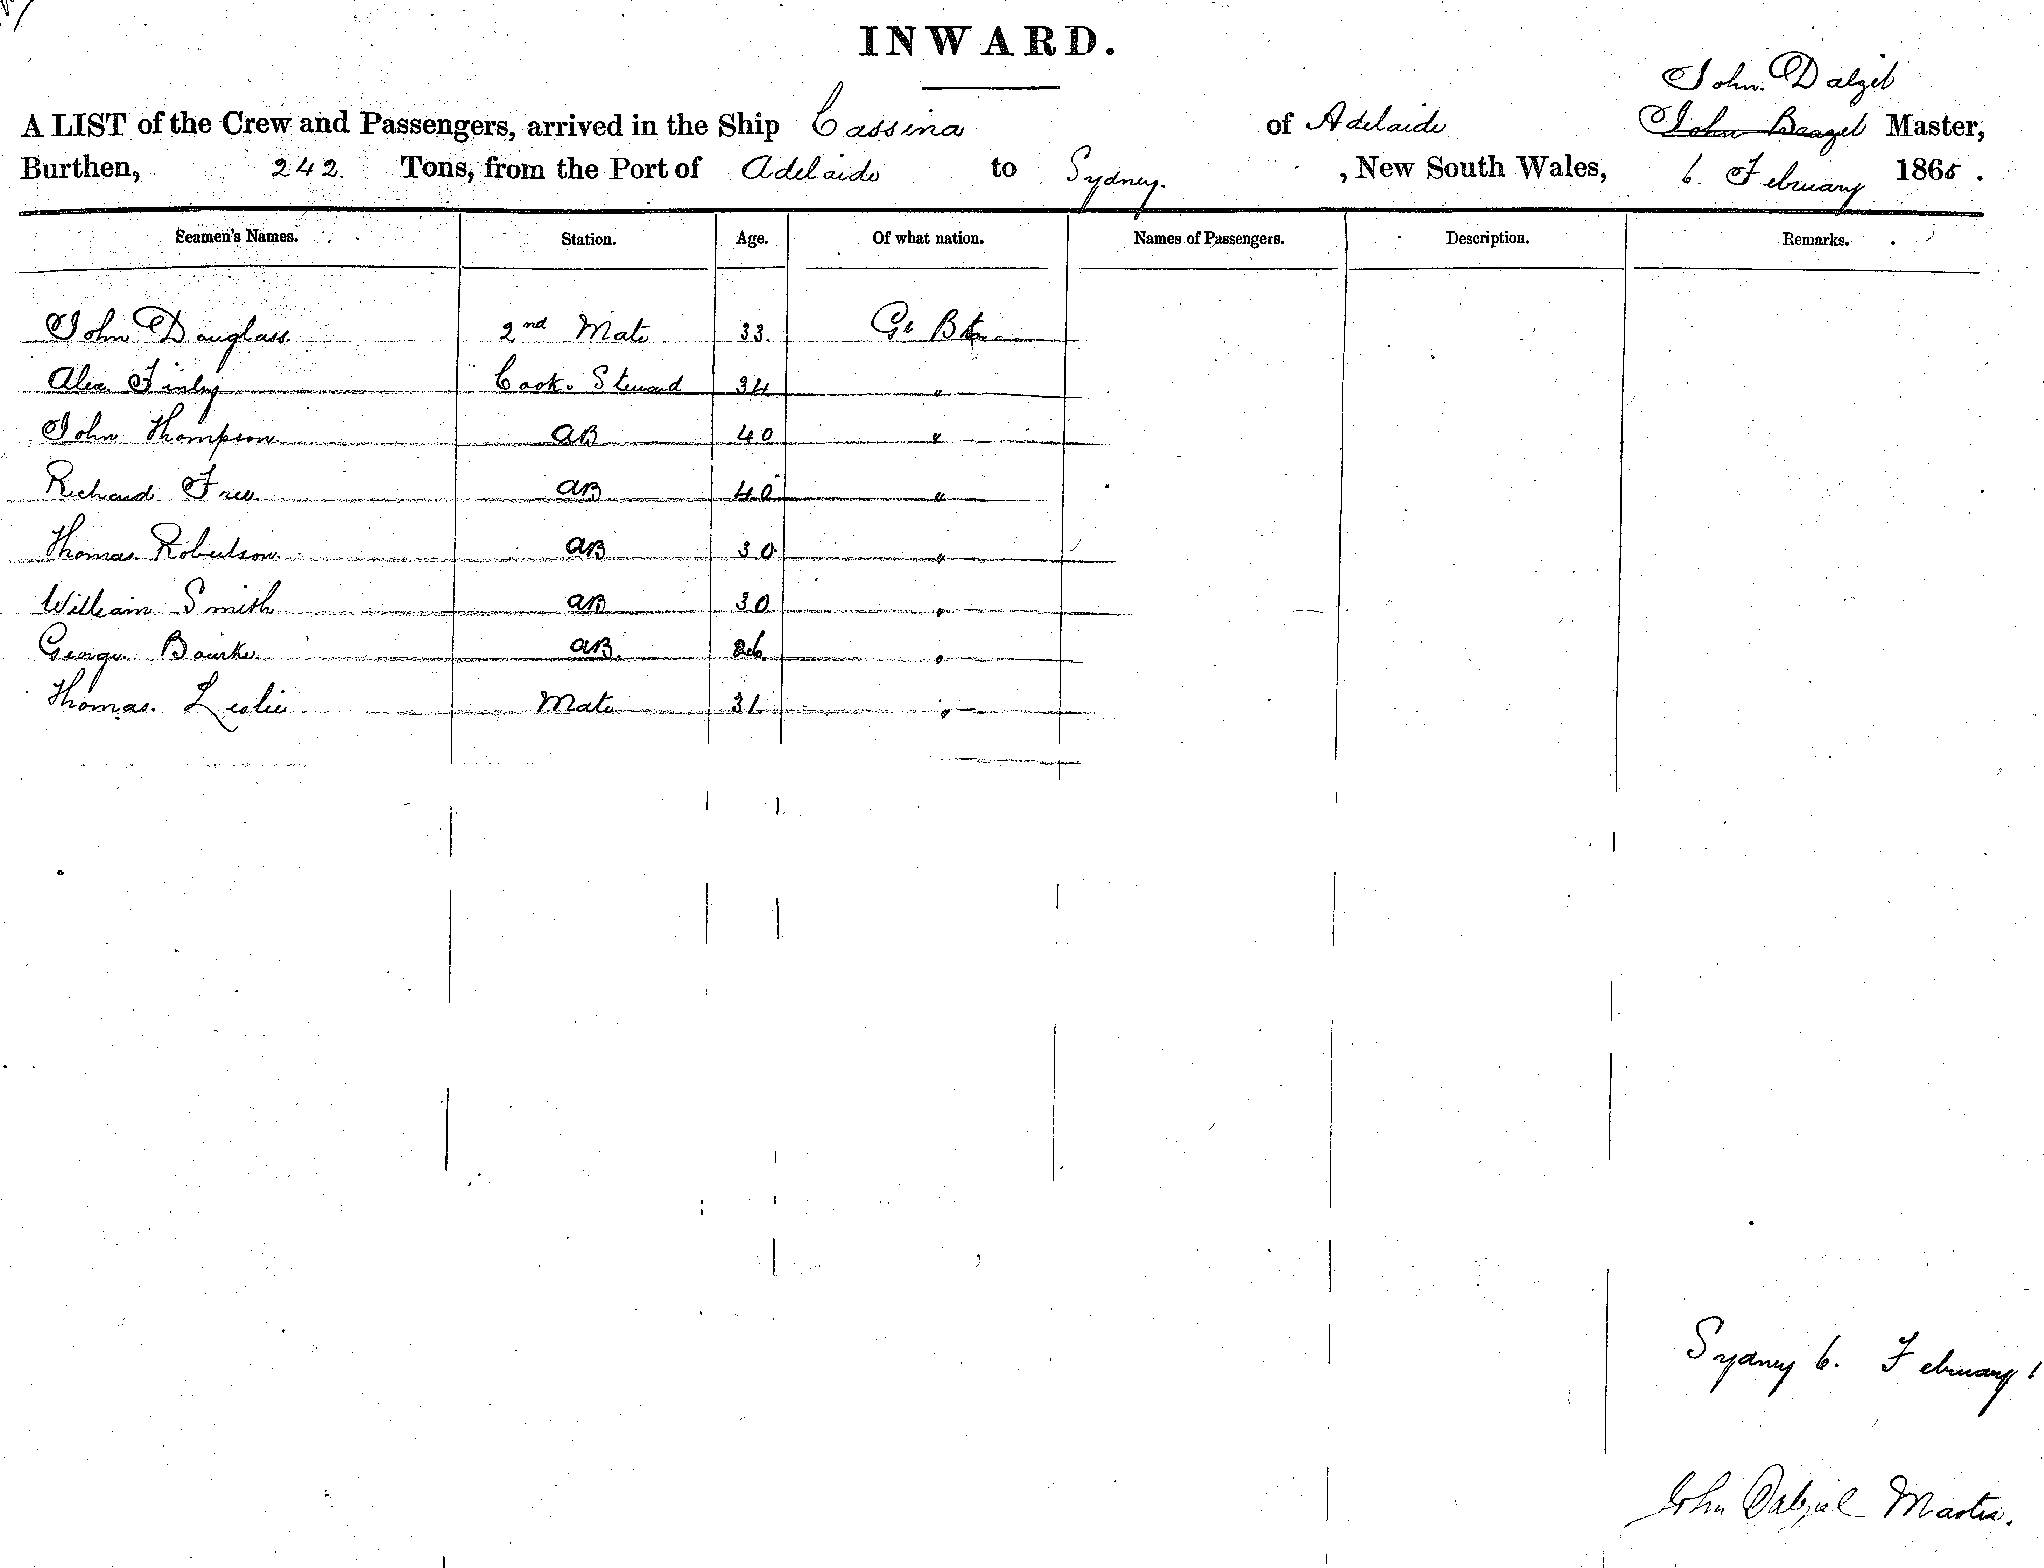 INWARD.
John Dalzel
A LIST of the Crew and Passengers, arrived in the Ship Cassina of Adelaide John Master,
Burthen, 242 Tons, from the Port of Adelaide to Sydney. , New South Wales, 6. February 1865.
Seamen's Names. Station. Age. Of what nation. Names of Passengers. Description. Remarks.
John Douglass 2nd Mate 33 Gt Btn
Alex Finlay Cook. Steward 34 "
John Thompson AB 40 "
Richard Free AB 40 "
Thomas Robertson AB 30 "
William Smith AB 30 "
George Bourke AB. 26 "
Thomas. Leslie Mate 31 "
Sydney 6. February 1
John Dalziel Master.